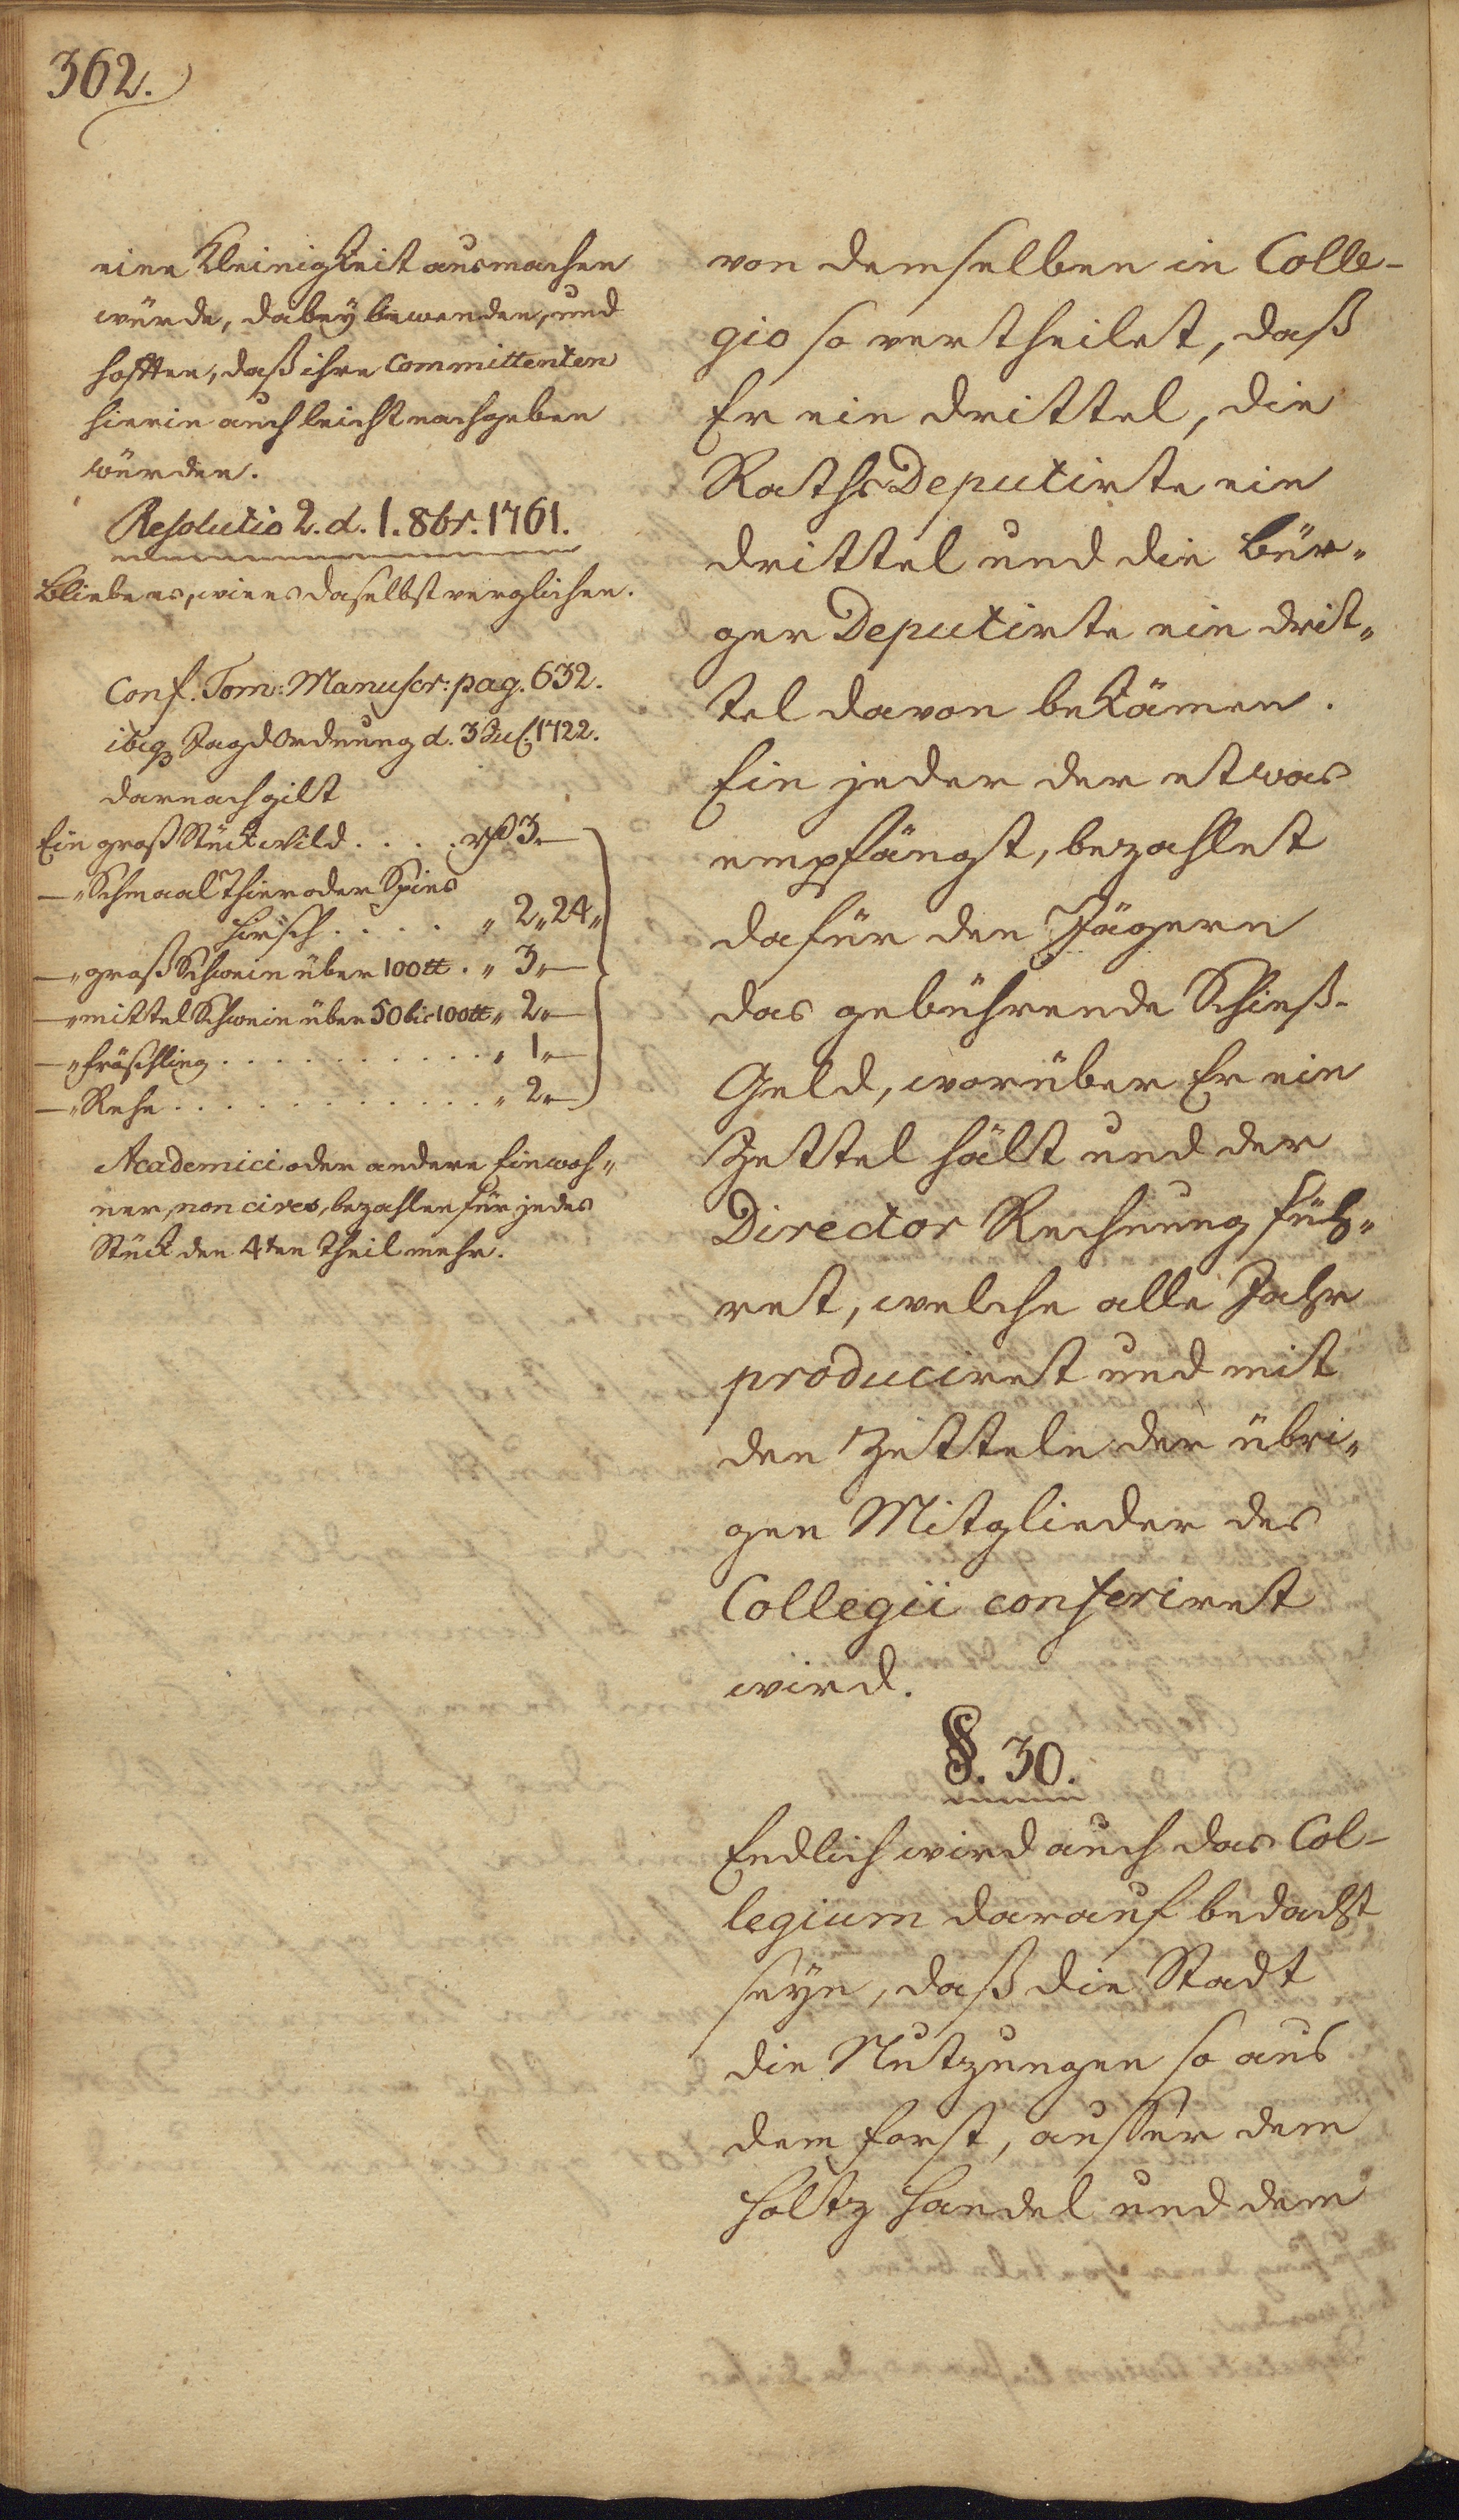 362.
eine Kleinigkeit ausmachen
würde, dabey bewenden, und
hofften, daß ihre Committenten
hierin auch leicht nachgeben
würden.
Resolutio 2. d. 1. 8br. 1761.
Bliebe es, wie es daselbst verglichen.
Conf. Tom: Manuscr: pag. 632.
ibiq Jagd Ordnung d. 3 Jul. 1722.
darnach gilt
Ein groß Stück Wild . . . . 3 „ —
— „ Schmaal Thier oder Spies
Hirsch . . . . „ 2 „ 24 „
— „ groß Schwein über 100 tt . „ 3 „ —
— „ mittel Schwein über 50 bis 100 tt „ 2 „ —
— „ Fröschling . . . . . . . . . . „ 1 „ —
— „ Rehe . . . . . . . . . . . . „ 2 „ —
Academici oder andere Einwoh„
ner, non cives, bezahlen für jedes
Stück den 4ten Theil mehr.
von demselben in Colle-
gio so vertheilet, daß
Er ein drittel, die
Raths Deputirte ein
drittel und die Bür„
ger Deputirte ein drit„
tel davon bekämen.
Ein jeder der etwas
empfängt, bezahlet
dafür den Jägern
das gebührende Schieß-
Geld, worüber Er ein
Zettel hält und der
Director Rechnung füh„
ret, welche alle Jahr
produciret und mit
den Zetteln der übri„
gen Mitglieder des
Collegii conferiret
wird.
§. 30.
Endlich wird auch das Col-
legium darauf bedacht
seyn, daß die Stadt
die Nutzungen so aus
dem Forst, ausser dem
Holtz Handel und dem